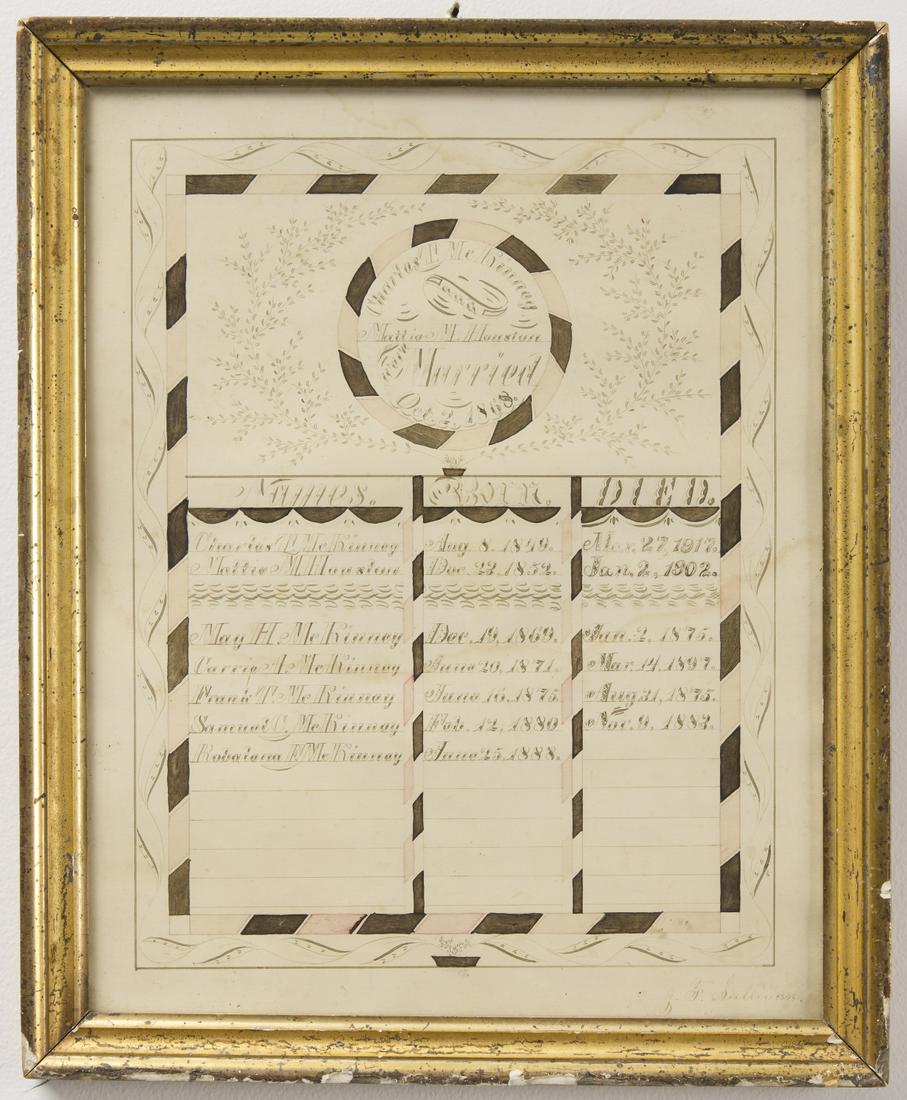 Charles F. McKinney
and
Mattie M. Houston
Married
Oct. 2, 1868.
Names. Born. DIED.
Charles F. McKinney Aug. 8. 1849. Mar. 27, 1917.
Mattie M. Houston Dec. 22, 1852. Jan. 2, 1902.
May H. McKinney Dec. 19, 1869. Jan. 2, 1875.
Carrie A. McKinney June 20, 1871. Mar. 14, 1897.
Frank T. McKinney June 16, 1875. Aug. 31, 1875.
Samuel C. McKinney Feb. 12, 1880 Nov. 9, 1882.
McKinney June 25, 1888.
F. Sullivan